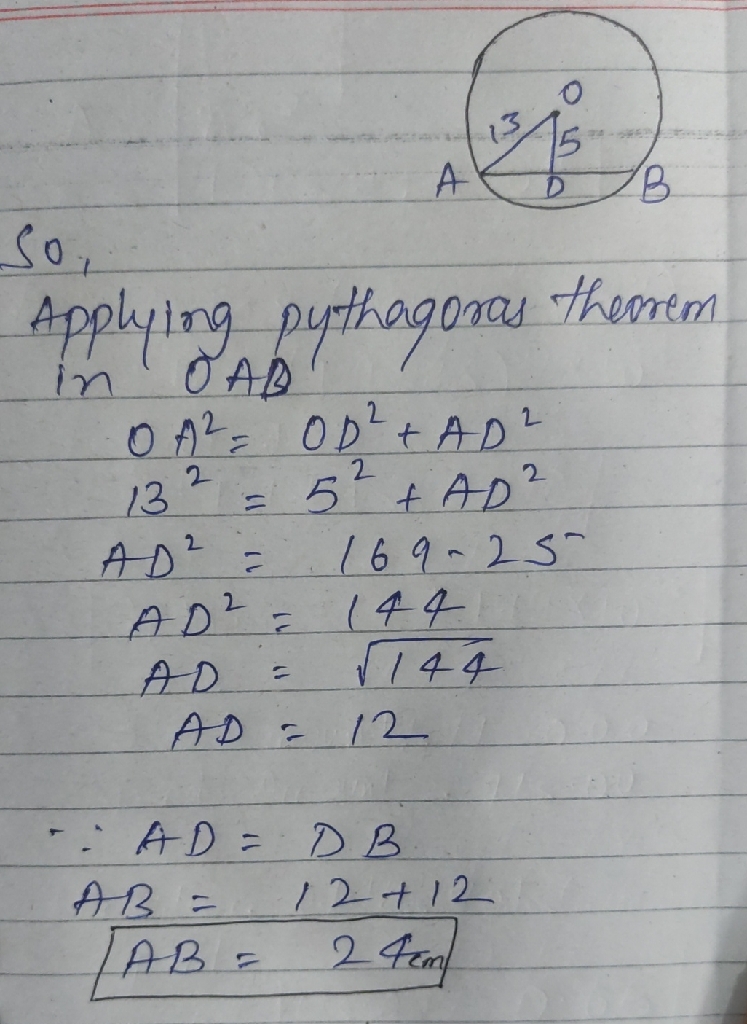 O
13
5
A
D
B
So,
Applying pythagoras theorem
in OAB
OA² = OD² + AD²
13² = 5² + AD²
AD² = 169 - 25
AD² = 144
AD = √144
AD = 12
∵ AD = DB
AB = 12 + 12
AB = 24cm